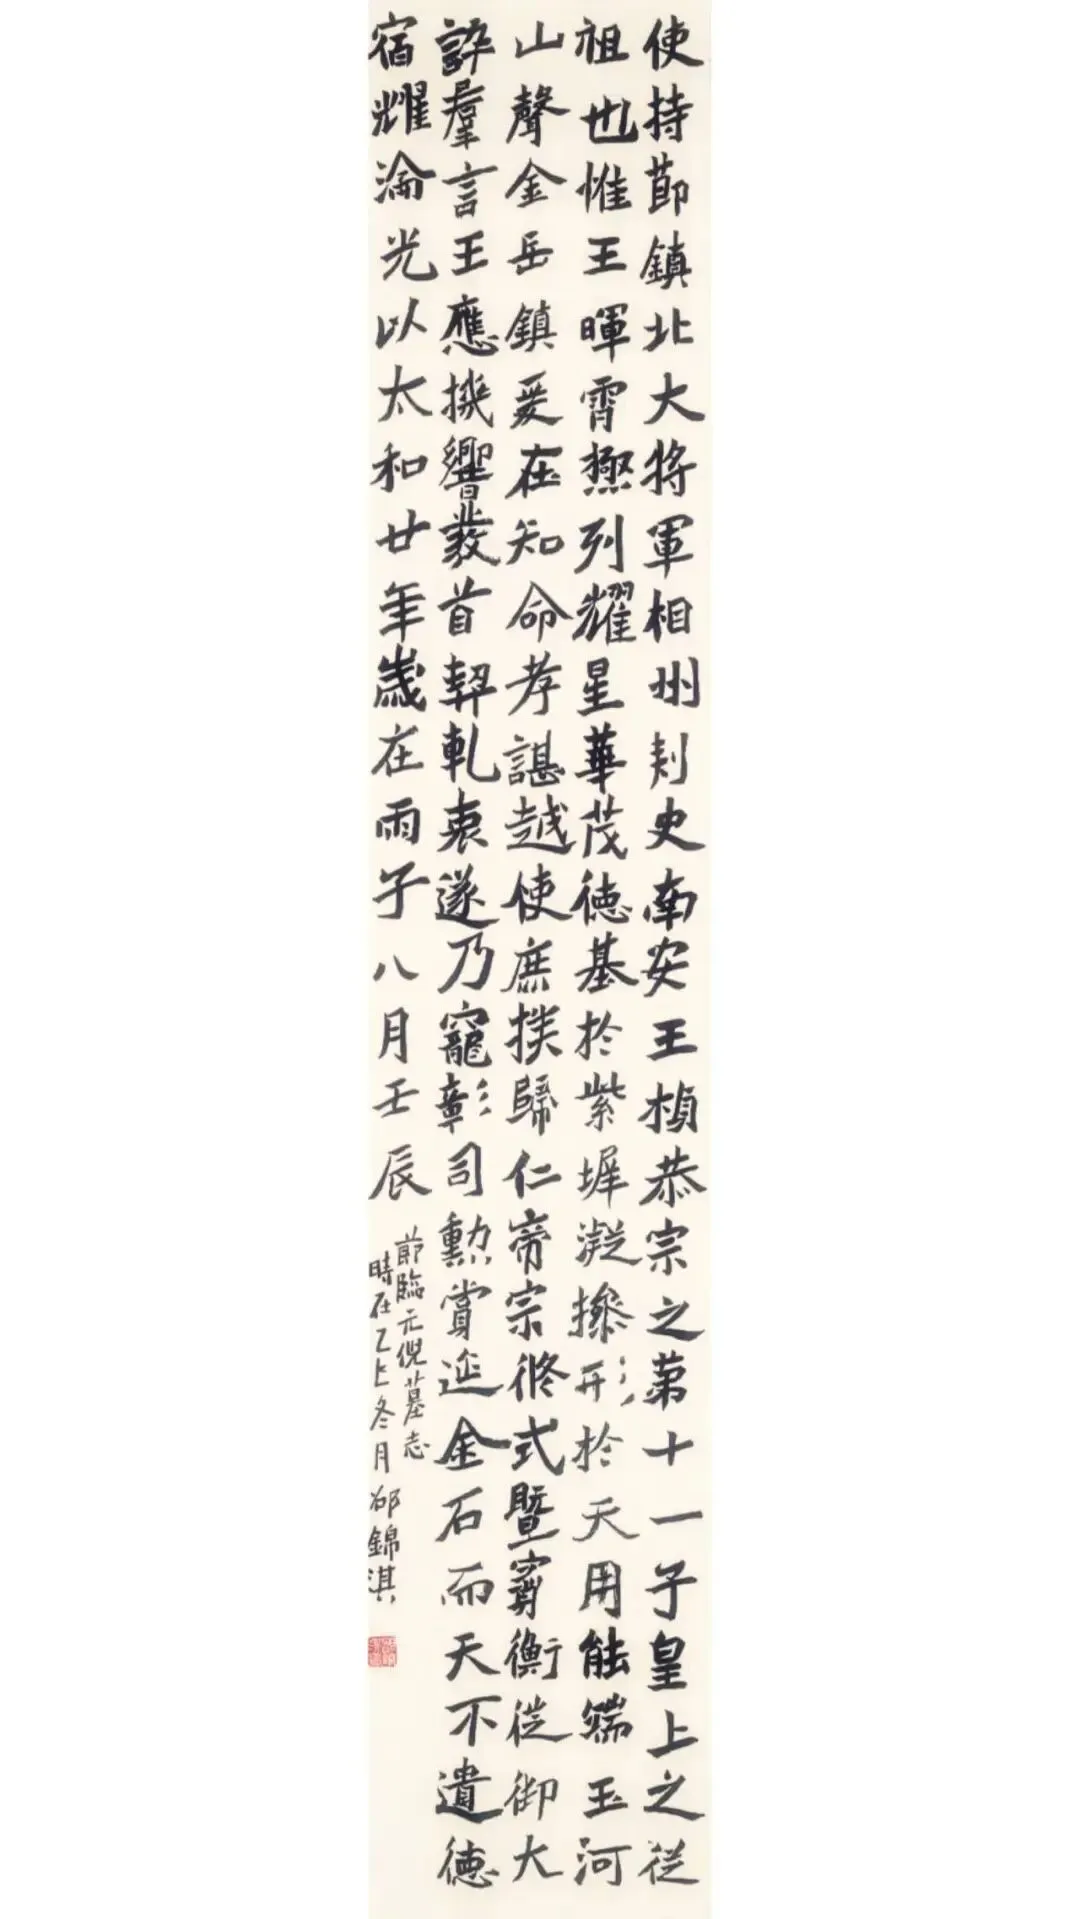 使持莭鎮北大將軍相州刺史南安王楨恭宗之第十一子皇上之從
祖也惟王暉霄極列耀星華茂德基於紫墀凝操形於天用能端玉河
山聲金岳鎮爰在知命孝諶越使庶撲歸仁帝宗攸式暨寶衡從御大
訊羣言王應機響發首契乹衷遂乃寵彰司勳賞延金石而天不遺德
宿耀淪光以太和廿年歲在丙子八月壬辰
莭臨元倪墓志
時在乙巳冬月邵錦淇